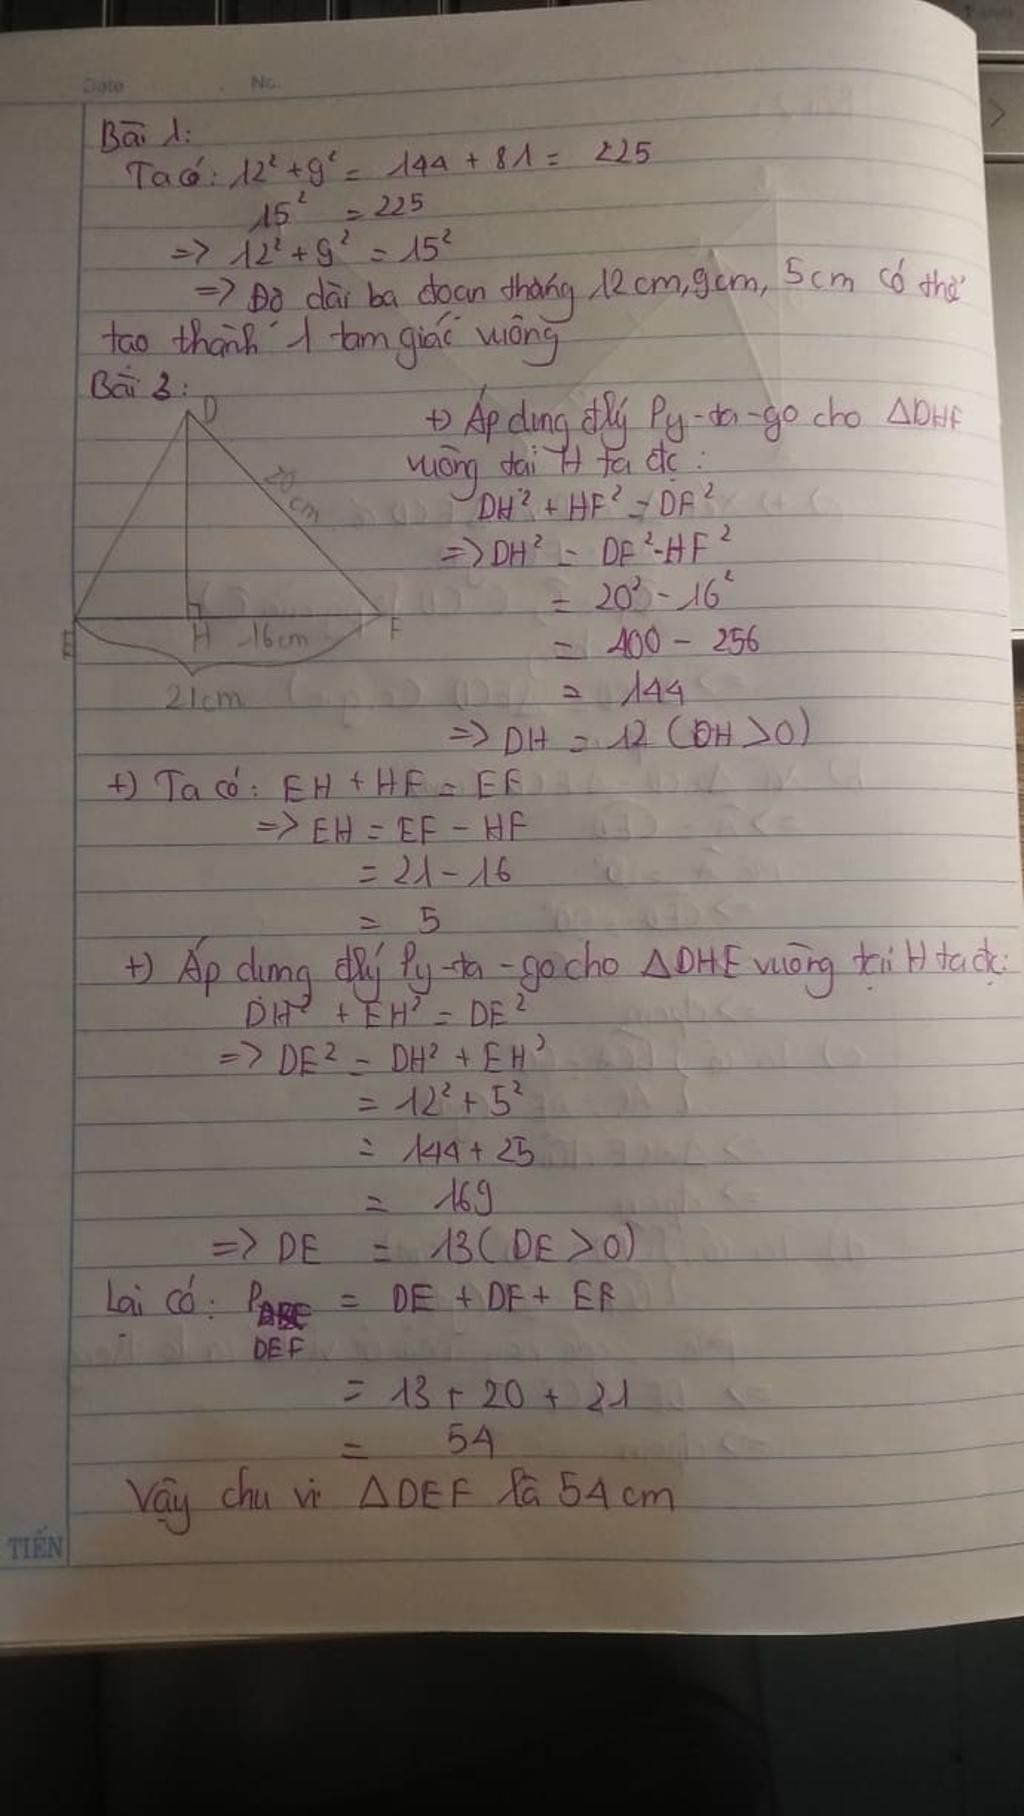 Date No.
Bài 1:
Ta có: 12² + 9² = 144 + 81 = 225
15² = 225
=> 12² + 9² = 15²
=> Độ dài ba đoạn thẳng 12cm, 9cm, 5cm có thể
tạo thành 1 tam giác vuông
Bài 3:
D
20 cm
E
H
16cm
F
21cm
+) Áp dụng đlý Py-ta-go cho ΔDHF
vuông tại H ta đc:
DH² + HF² = DF²
=> DH² = DF² - HF²
= 20² - 16²
= 400 - 256
= 144
=> DH = 12 (DH > 0)
+) Ta có: EH + HF = EF
=> EH = EF - HF
= 21 - 16
= 5
+) Áp dụng đlý Py-ta-go cho ΔDHE vuông tại H ta đc:
DH² + EH² = DE²
=> DE² = DH² + EH²
= 12² + 5²
= 144 + 25
= 169
=> DE = 13 (DE > 0)
Lại có: P = DE + DF + EF
DEF
= 13 + 20 + 21
= 54
Vậy chu vi ΔDEF là 54 cm
TIẾN